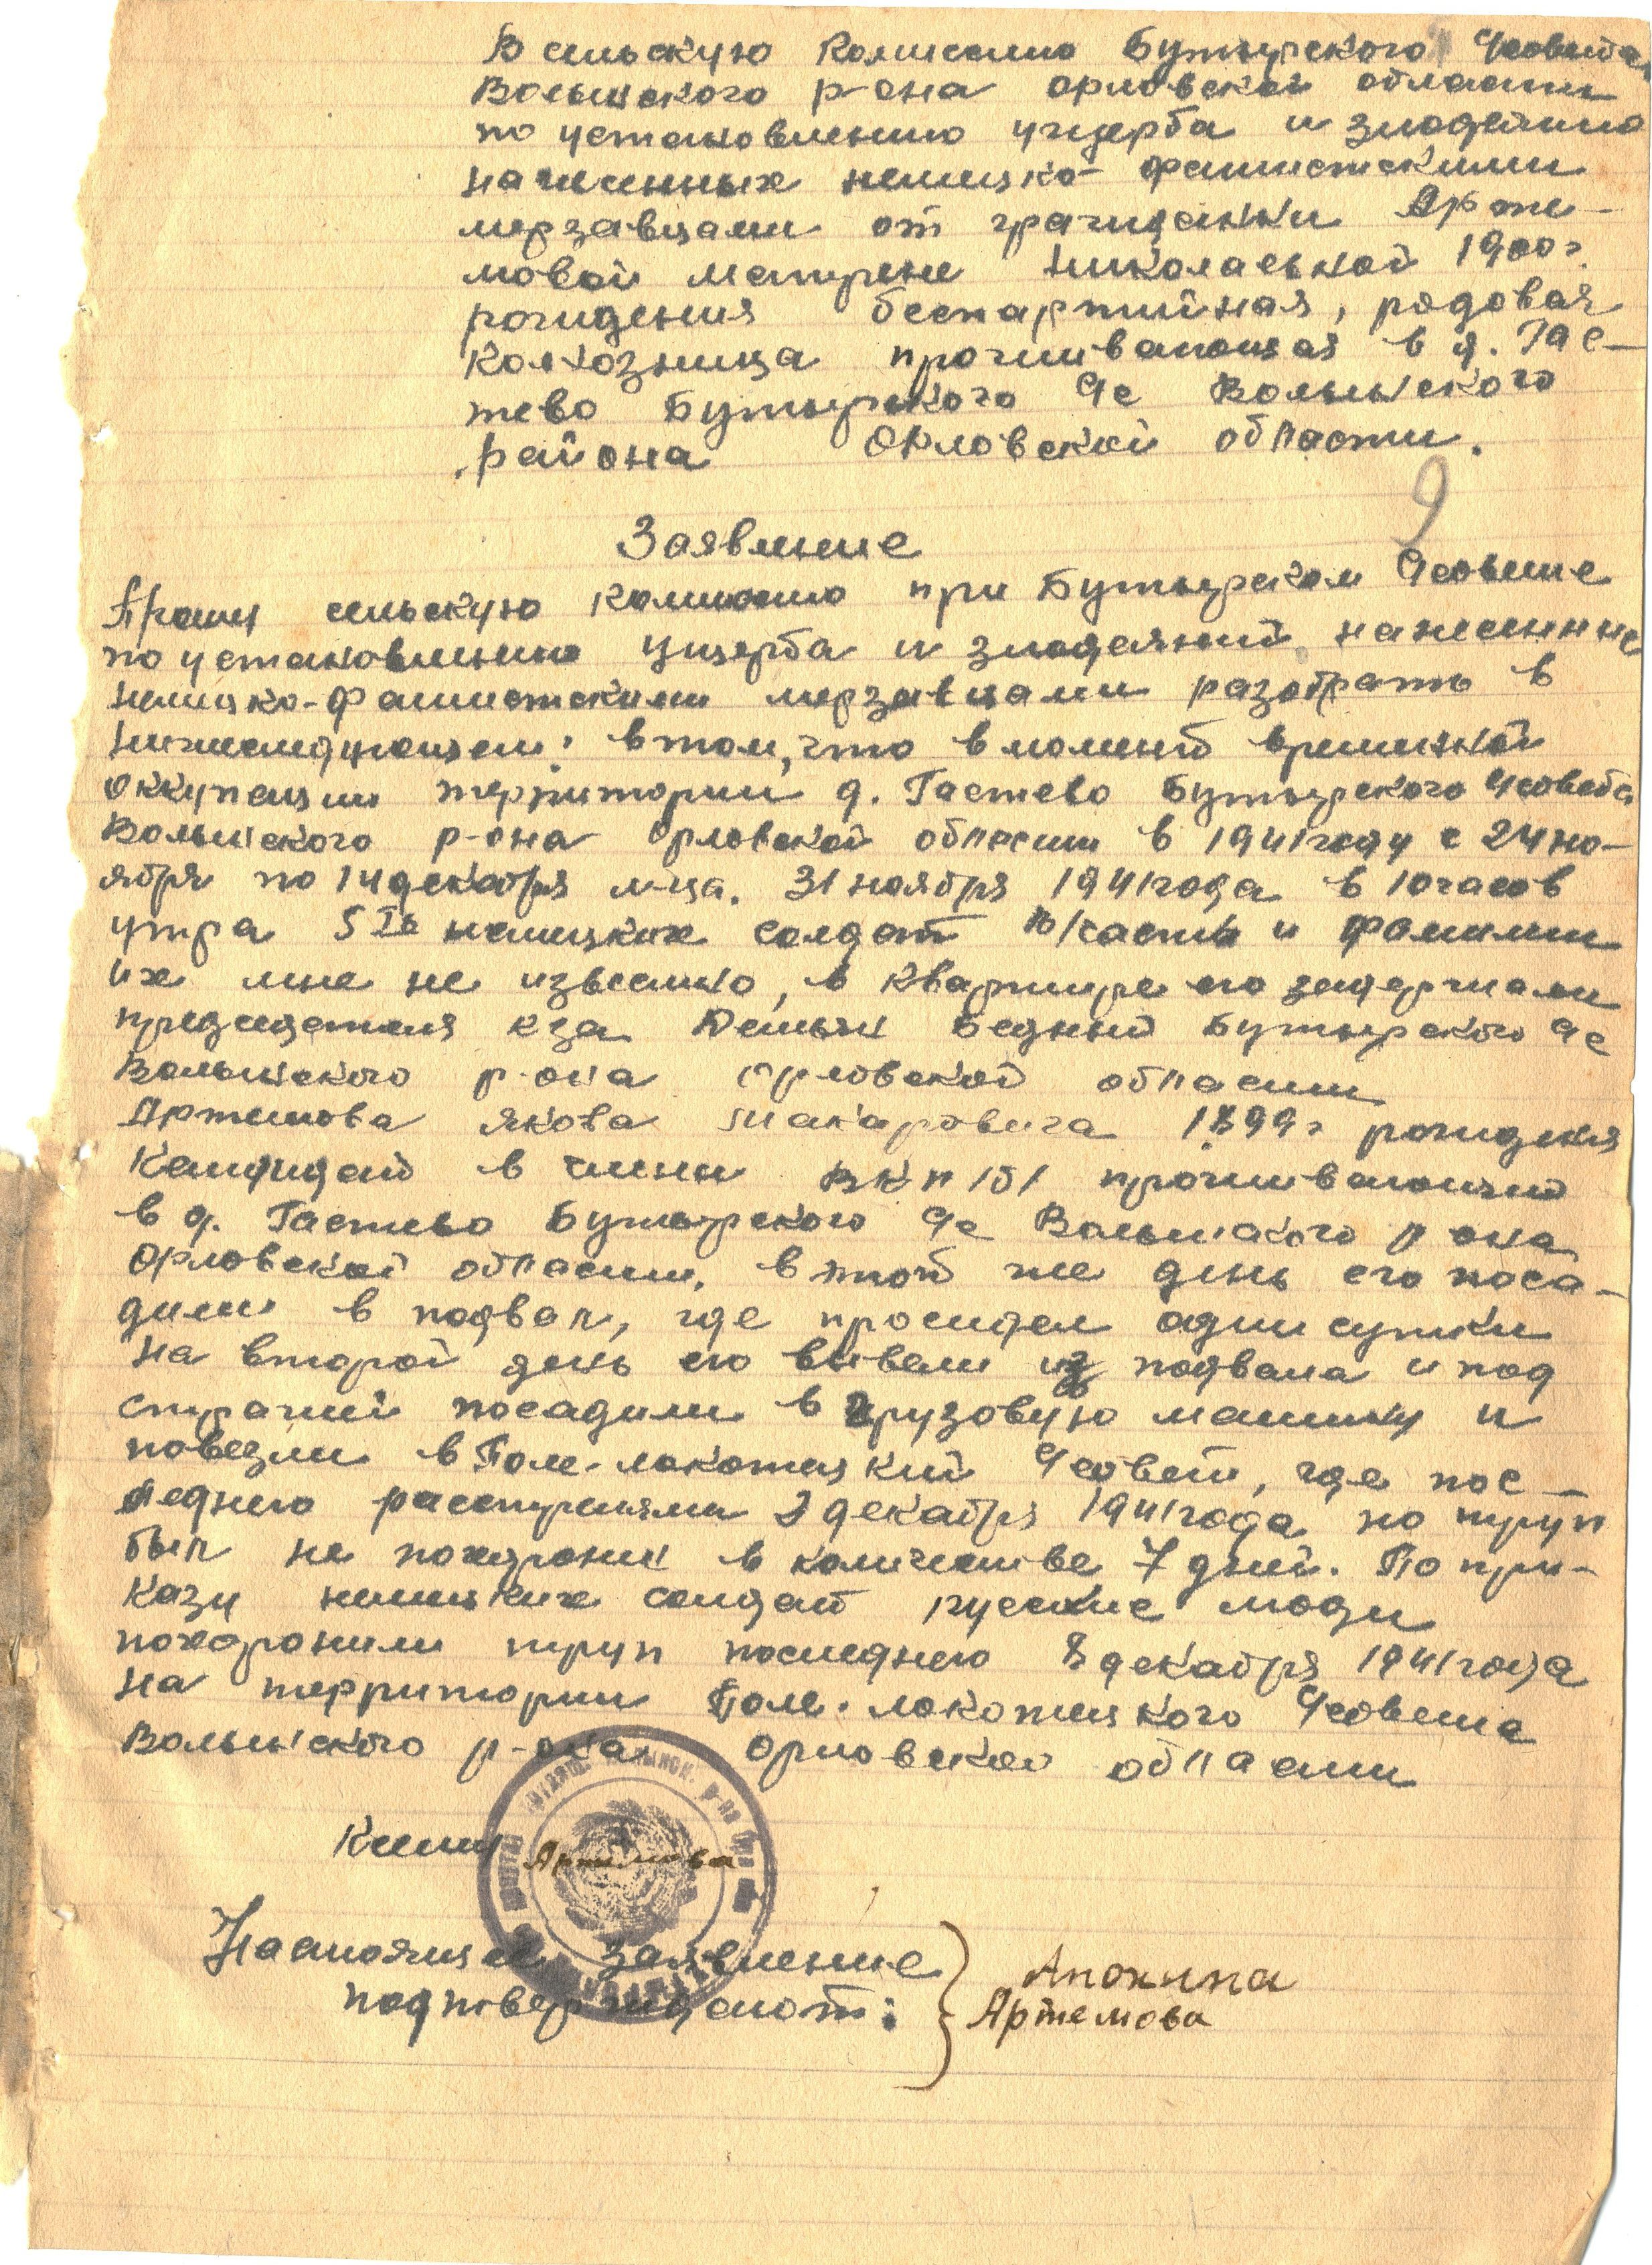 В сельскую комиссию Бутырского с/совета
Волынского р-она орловской области
по установлению ущерба и злодеяние
нанесенных немецко-фашистскими
мерзавцами от гражданки Арте-
мовой Матрене Николаевной 1900г.
рождения беспартийная, рядовая
колхозница проживающая в д. Гас-
тево Бутырского с/с Волынского
района Орловской области.
9
Заявление
Прошу сельскую комиссию при Бутырском с/совете
по установлению ущерба и злодеяний нанесенные
немецко-фашистскими мерзавцами разобрать в
нижеследующем: в том, что в момент временной
оккупации территории д. Гастево Бутырского с/совета
Волынского р-она Орловской области в 1941 году с 24 но-
ября по 14 декабря м-ца. 31 ноября 1941 года в 10 часов
утра 5 немецких солдат в/часть и фамилии
их мне не известно, в квартире его задержали
председателя к-за Демьян Бедный Бутырского с/с
Волынского р-она Орловской области
Артемова Якова Макаровича 1899г рождения
кандидат в члены ВКП/б/ проживающий
в д. Гастево Бутырского с/с Волынского р-она
Орловской области. в этот же день его поса-
дили в подвал, где просидел одни сутки
на второй день его вывели из подвала и под
стражей посадили в грузовую машину и
повезли в Голе-локотецкий с/совет, где пос-
леднего расстреляли 2 декабря 1941 года, но труп
был не похоронен в количестве 7 дней. По при-
казу немецких солдат русские люди
похоронили труп последнего 8 декабря 1941 года
на территории Голе-локотецкого с/совета
Волынского р-она Орловской области
К сему Артемова
Настоящее заявление
подтверждают:
Апохина
Артемова